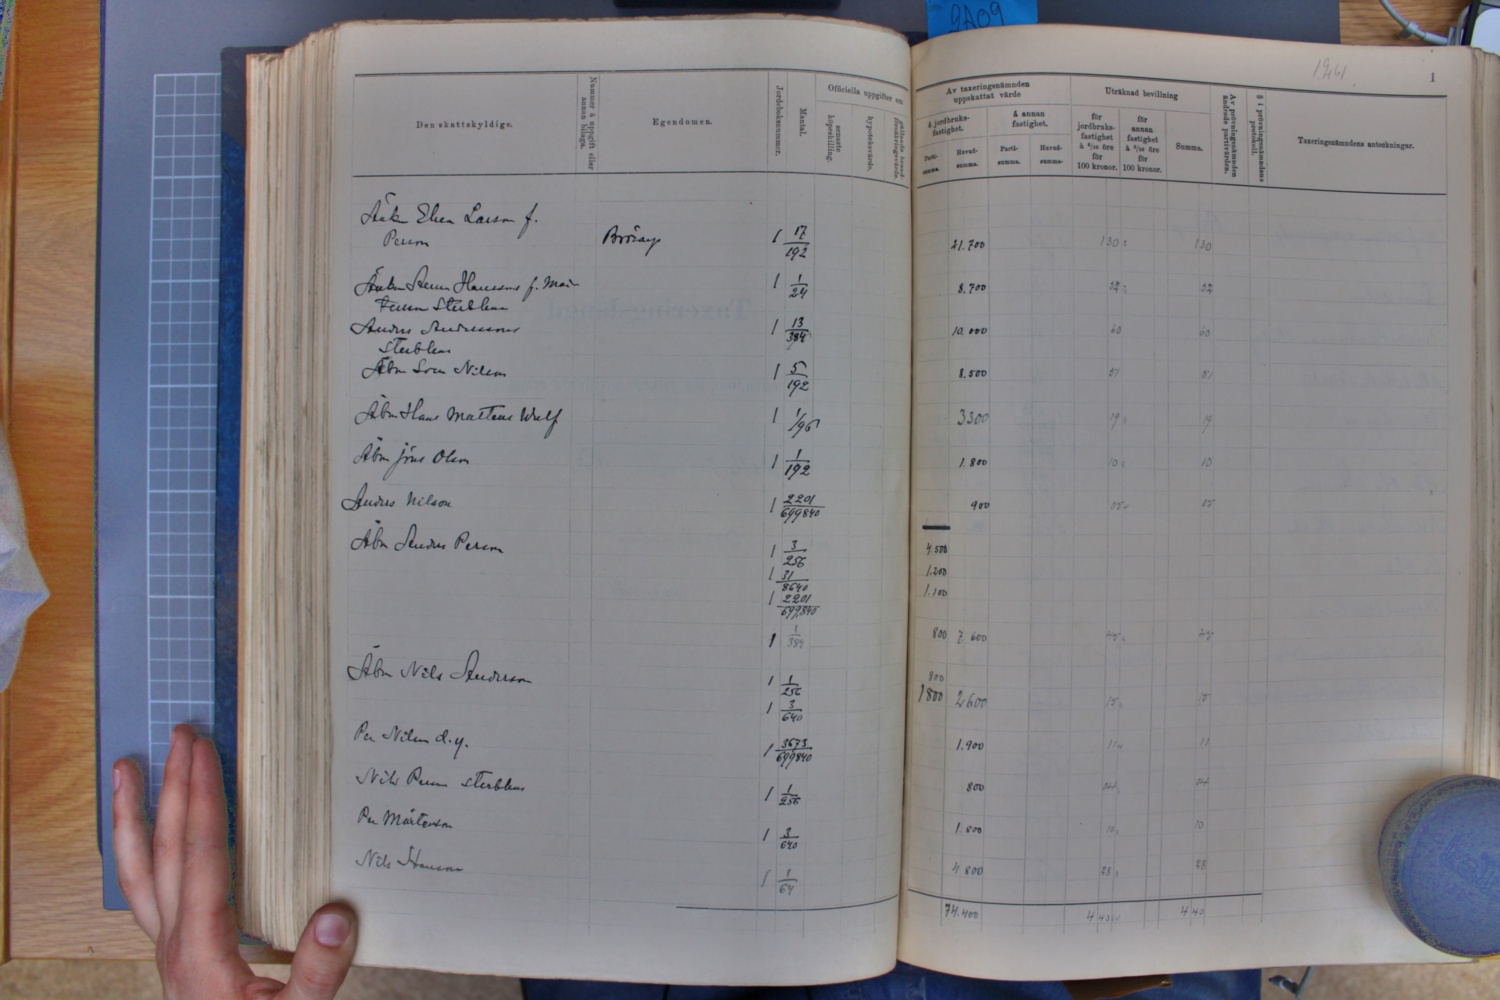 9A09
1941
1
Den skattskyldige.
Nummer å uppgift eller annan bilaga.
Egendomen.
Jordeboksnummer.
Mantal.
Officiella uppgifter om
senaste köpeskilling.
hypoteksvärde.
Av taxeringsnämnden uppskattat värde
å jordbruks-fastighet.
å annan fastighet.
Parti-summa.
Huvud-summa.
Parti-summa.
Huvud-summa.
Uträknad bevillning
för jordbruks-fastighet à 6/10 öre för 100 kronor.
för annan fastighet à 5/10 öre för 100 kronor.
Summa.
Av prövningsnämnden ändrade partivärden.
§ i prövningsnämndens protokoll.
Taxeringsnämndens anteckningar.
Änkn Elsa Larson f.
Person Brösarp 1 17/192 21.700 130 130
1 1/24 8.700 52 52
Anders Anderssons 1 13/384 10.000 60 60
Sterbhus
Åbn Sven Nilson 1 5/192 8.500 51 51
Åbn Hans Mattens Wulf 1 1/96 3300 19 19
Åbn Jöns Olson 1 1/192 1.800 10 10
Anders Nilsson 1 2201/699840 900 05 05
Åbn Anders Person 1 3/256 4.500
1 31/8640 1.200
1 2201/699840 1.100
1 1/384 800 7.600 45 45
Åbn Nils Anderson 1 1/256 800
1 3/640 1800 2600 15 15
Per Nilson d.y. 1 3673/699840 1.900 11 11
Nils Person Sterbhus 1 1/256 800 04 04
Per Mårtenson 1 3/640 1.800 10 10
Nils Hanson 1 1/64 4.800 28 28
74.400 440 440